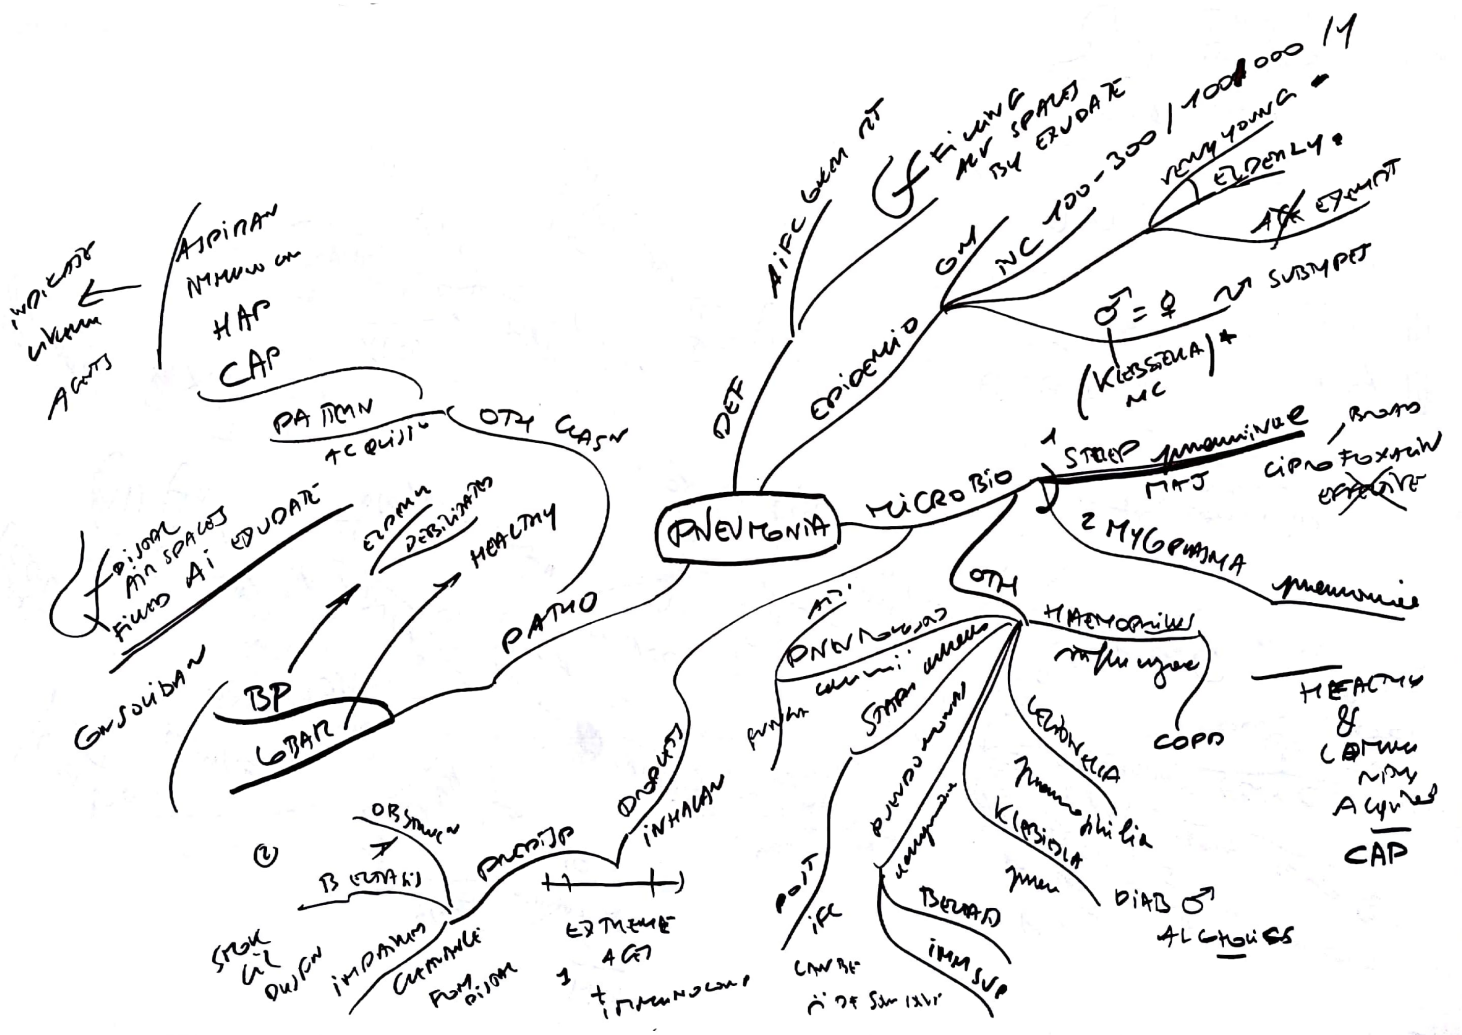 PNEUMONIA
DEF
FiLLiNG
AiR SPACES
BY EXUDATE
EPiDEMiO
iNC 100-300 / 100 000 /Y
VERY YOUNG
ELDERLY
EXEMPT
♂ = ♀
SUBTYPES
(KLEBSiELLA)
MiCROBiO
1 STREP pneumoniae
MAJ
BROAD
CiPROFOXACiN
EFFECTIVE
2 MYCOPLASMA pneumoniae
OTH
HAEMOPHiLUS
influenzae
COPD
HEALTHY
&
ACquired
CAP
LEGiONELLA
pneumophilia
KLEBSiELLA
pneu
DiAB ♂
ALCOHOLiCS
PSEUDOMONAS
BCEAD
iMM SUP
STAPH aureus
POST
iFC
CAN BE
PNEUMOCYSTIS
carinii
DROPLETS
iNHALAN
PREDiSP
EXTREME
AGES
+ iMMUNOCOMP
OBSTRUCN
iMPAiRED
CLEARANCE
FROM
DiSTAL
PATHO
BP
LOBAR
ELDERLY
DEBiLiTATED
HEALTHY
CONSOLiDAN
DiSTAL
AiR SPACES
FiLLED Ai EXUDATE
OTH CLASN
PATTERN
ACQUiSiN
ASPiRAN
iMMUNO COM
HAP
CAP
iNDiCATE
AGENTS